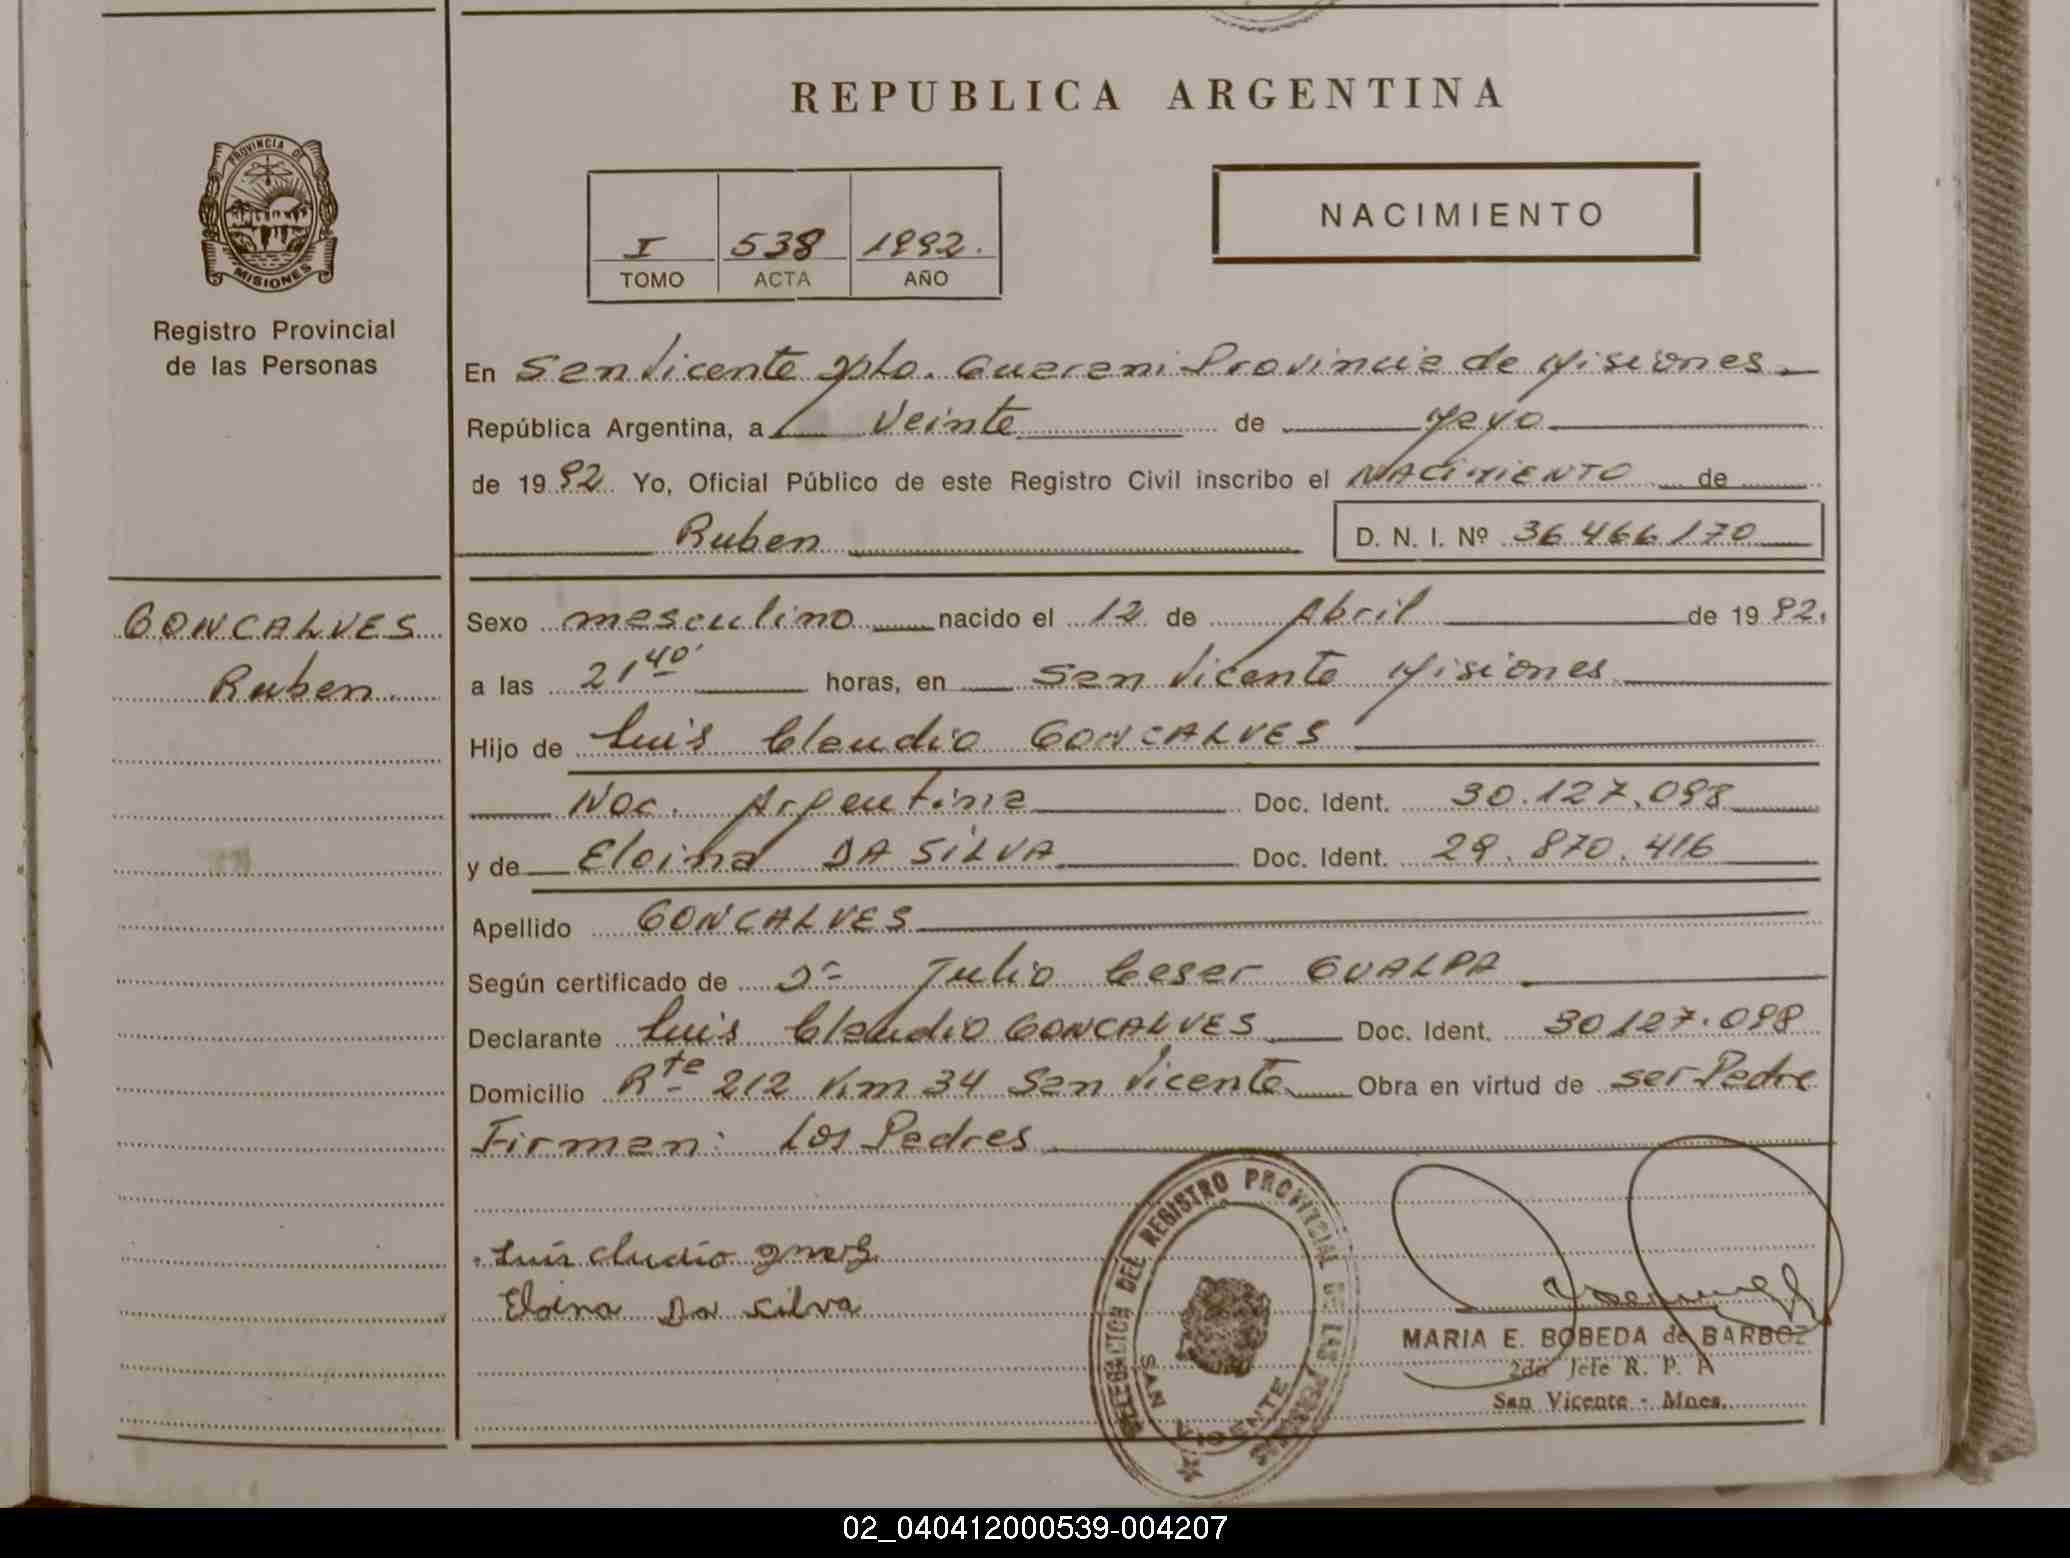 REPUBLICA ARGENTINA
PROVINCIA DE
MISIONES
Registro Provincial
de las Personas
I 538 1992.
TOMO ACTA AÑO
NACIMIENTO
En San Vicente Dpto. Guarani Provincia de Misiones
República Argentina, a Veinte de Mayo
de 1992 Yo, Oficial Público de este Registro Civil inscribo el NACIMIENTO de
Ruben D. N. I. Nº 36.466.170
GONCALVES
Ruben
Sexo masculino nacido el 12 de Abril de 1992.
a las 21 40' horas, en San Vicente Misiones
Hijo de Luis Claudio GONCALVES
Nac. Argentina Doc. Ident. 30.127.098
y de Eloina DA SILVA Doc. Ident. 29.870.416
Apellido GONCALVES
Según certificado de Dr Julio Cesar GUALPA
Declarante Luis Claudio GONCALVES Doc. Ident. 30127.098
Domicilio Rta 212 Km 34 San Vicente Obra en virtud de ser Padre
Firman: Los Padres
Luis cludio
Eloina Da Silva
DELEGACION DEL REGISTRO PROVINCIAL DE LAS PERSONAS
SAN VICENTE
MISIONES
MARIA E. BOBEDA de BARBOZ
2do Jefe R. P. P
San Vicente - Mnes.
02_040412000539-004207